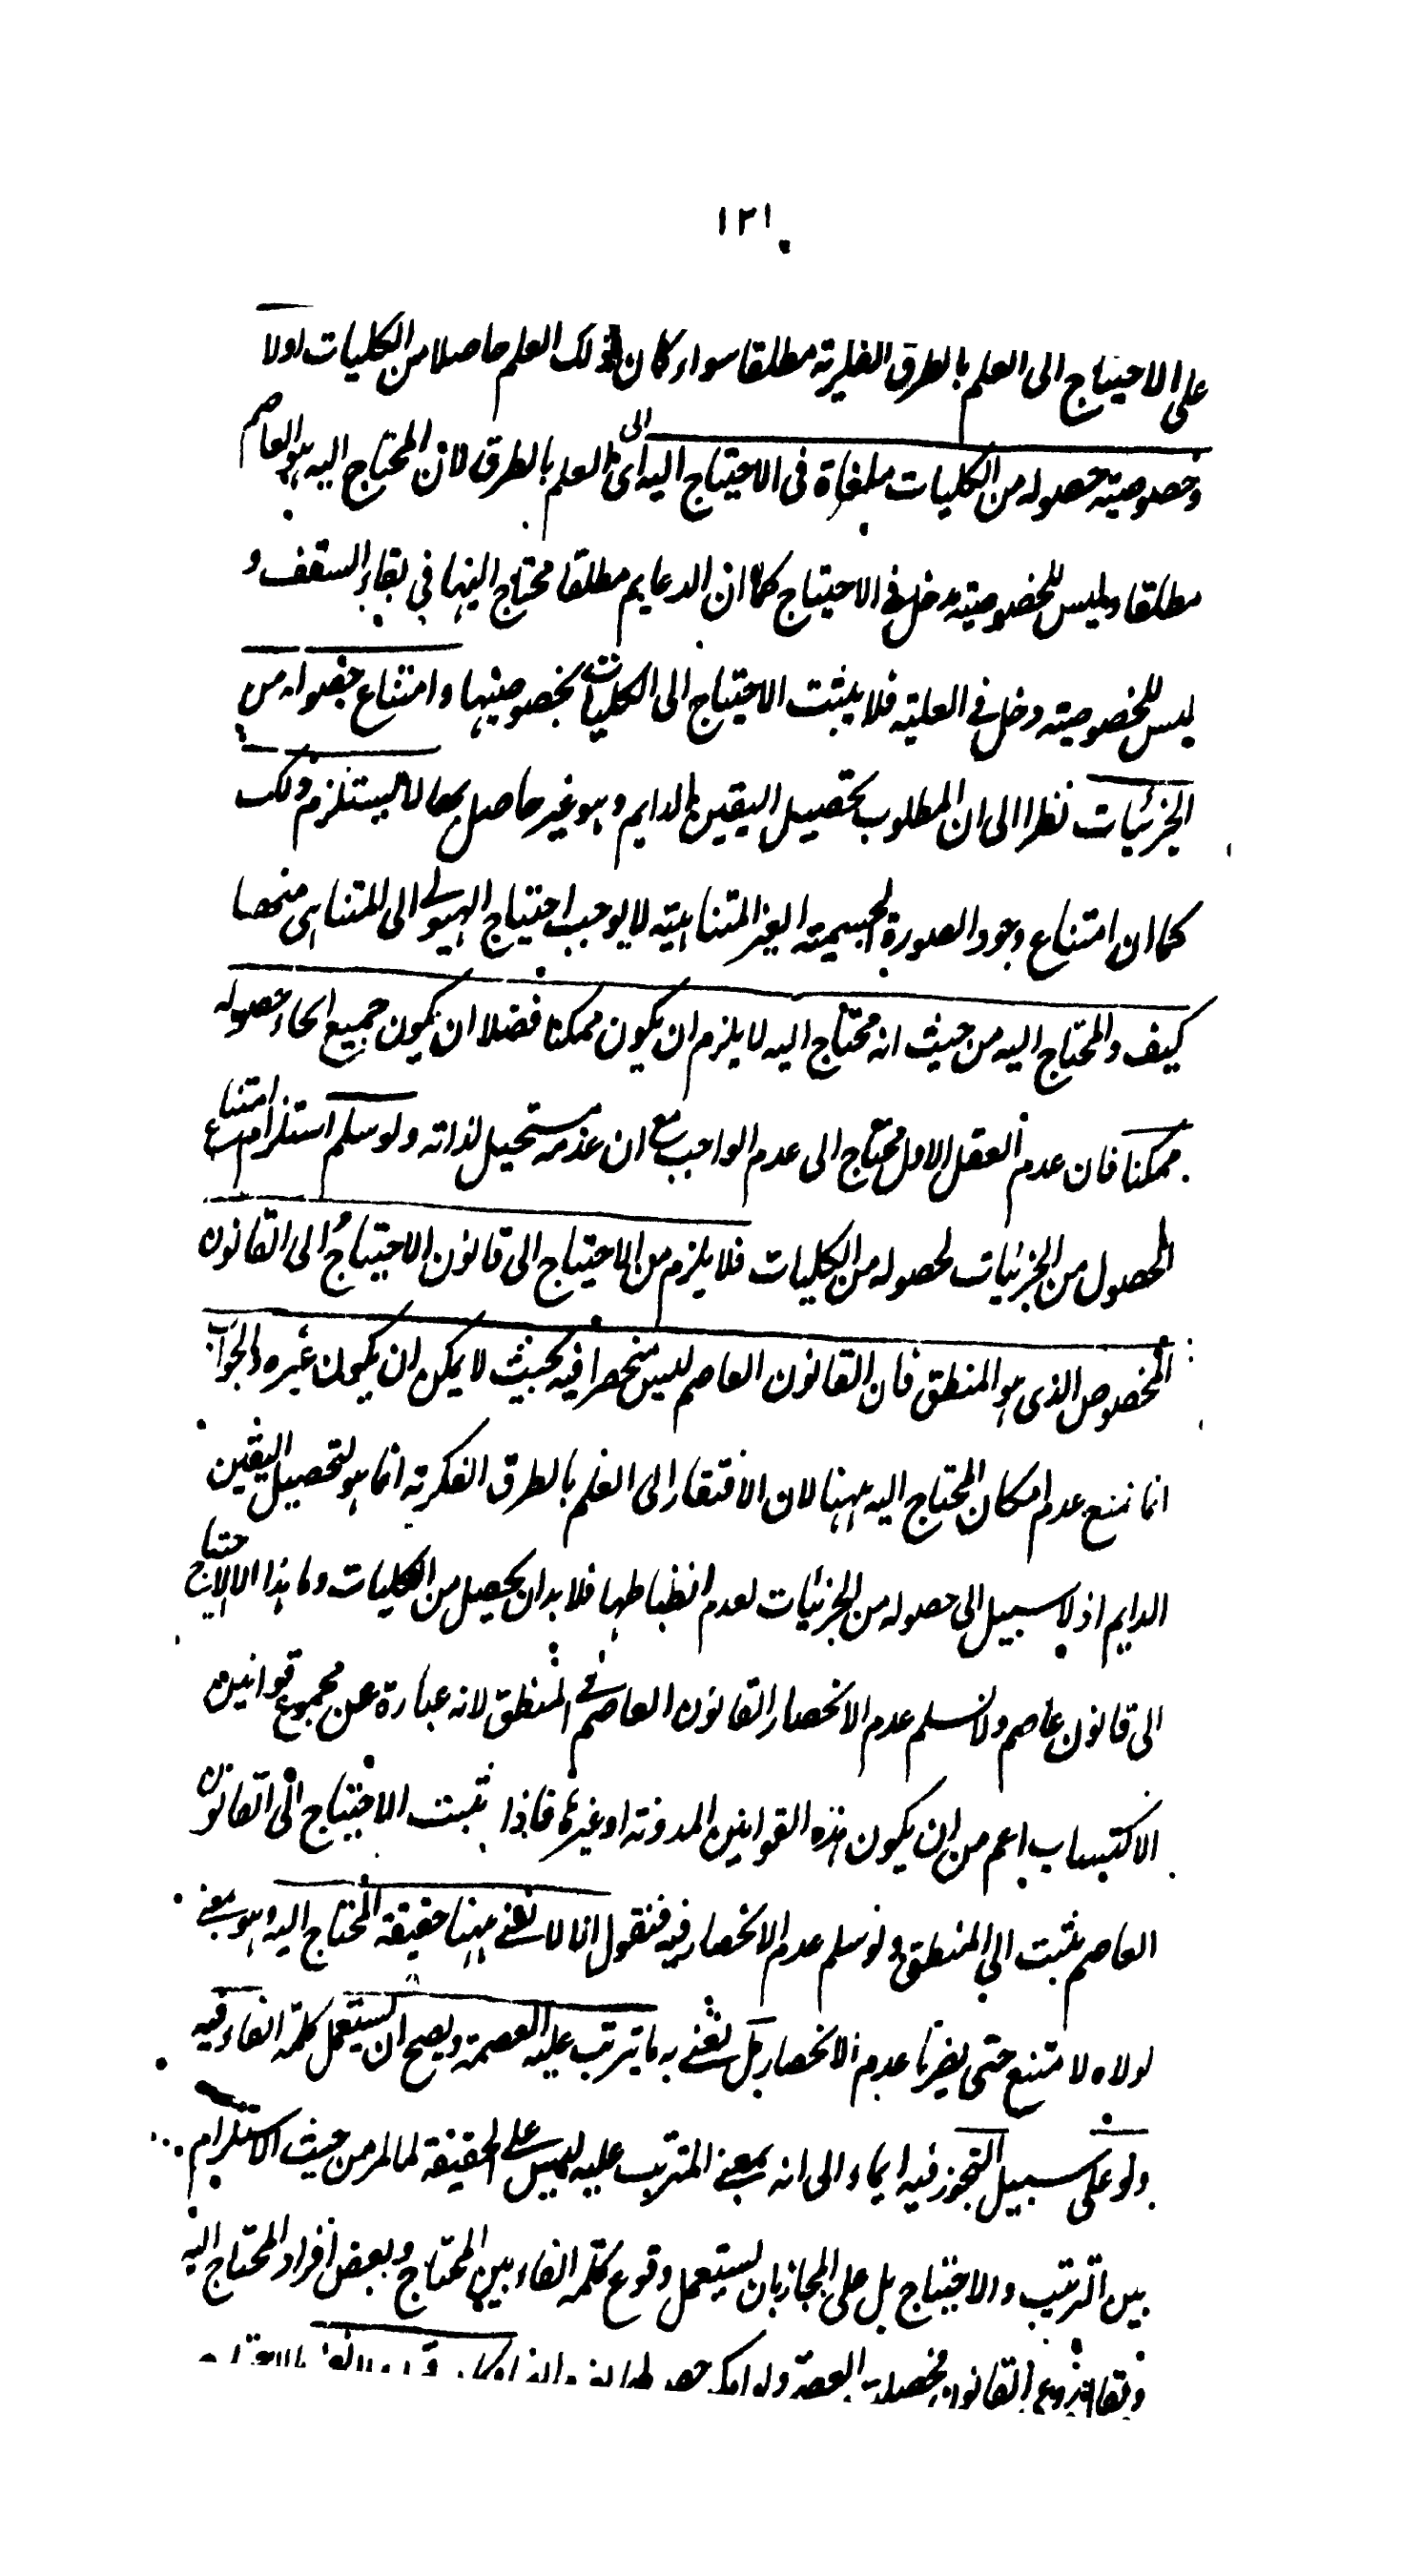 ١٣١
على الاحتياج الى العلم بالطرق الفكرية مطلقا سواء كان ذلك العلم حاصلا من الكليات اولا
وخصوصية حصوله من الكليات ملغاة في الاحتياج اليه اى الى العلم بالطرق لان المحتاج اليه هو العاصم
مطلقا وليس للخصوصية دخل في الاحتياج كما ان الدعايم مطلقا محتاج اليها في بقاء السقف و
ليس للخصوصية دخل في العلية فلا يثبت الاحتياج الى الكليات بخصوصيتها وامتناع حصوله من
الجزئيات نظرا الى ان المطلوب تحصيل اليقين الدايم وهو غير حاصل بها لا يستلزم ذلك
كما ان امتناع وجود الصورة الجسمية الغير المتناهية لا يوجب احتياج الهيولى الى المتناهى منها
كيف والمحتاج اليه من حيث انه محتاج اليه لا يلزم ان يكون ممكنا فضلا ان يكون جميع انحاء حصوله
ممكنا فان عدم العقل الاول محتاج الى عدم الواجب مع ان عدمه مستحيل لذاته ولو سلم استلزام امتناع
الحصول من الجزئيات لحصوله من الكليات فلا يلزم من الاحتياج الى قانون الاحتياج الى القانون
المخصوص الذى هو المنطق فان القانون العاصم ليس منحصرا فيه بحيث لا يمكن ان يكون غيره والجواب
انا نمنع عدم امكان المحتاج اليه ههنا لان الافتقار الى العلم بالطرق الفكرية انما هو لتحصيل اليقين
الدايم اذ لا سبيل الى حصوله من الجزئيات لعدم انضباطها فلا بد ان يحصل من الكليات وما هذا الا الاحتياج
الى قانون عاصم ولا نسلم عدم الانحصار القانون العاصم في المنطق لانه عبارة عن مجموع قوانين
الاكتساب اعم من ان يكون هذه القوانين المدونة او غيرها فاذا ثبت الاحتياج الى القانون
العاصم ثبت الى المنطق ولو سلم عدم الانحصار فيه فنقول انا لا نعنى ههنا حقيقة المحتاج اليه وهو بمعنى
لولاه لامتنع حتى يضرنا عدم الانحصار بل نعنى به ما يترتب عليه العصمة ويصح ان يستعمل كلمة الفاء فيه
ولو على سبيل التجوز فيه ايماء الى انه بمعنى المترتب عليه ليس على الحقيقة لما لمر من حيث الاستلزام
بين الترتب والاحتياج بل على المجاز بان يستعمل وقوع كلمة الفاء بين المحتاج وبعض افراد المحتاج اليه
القانون